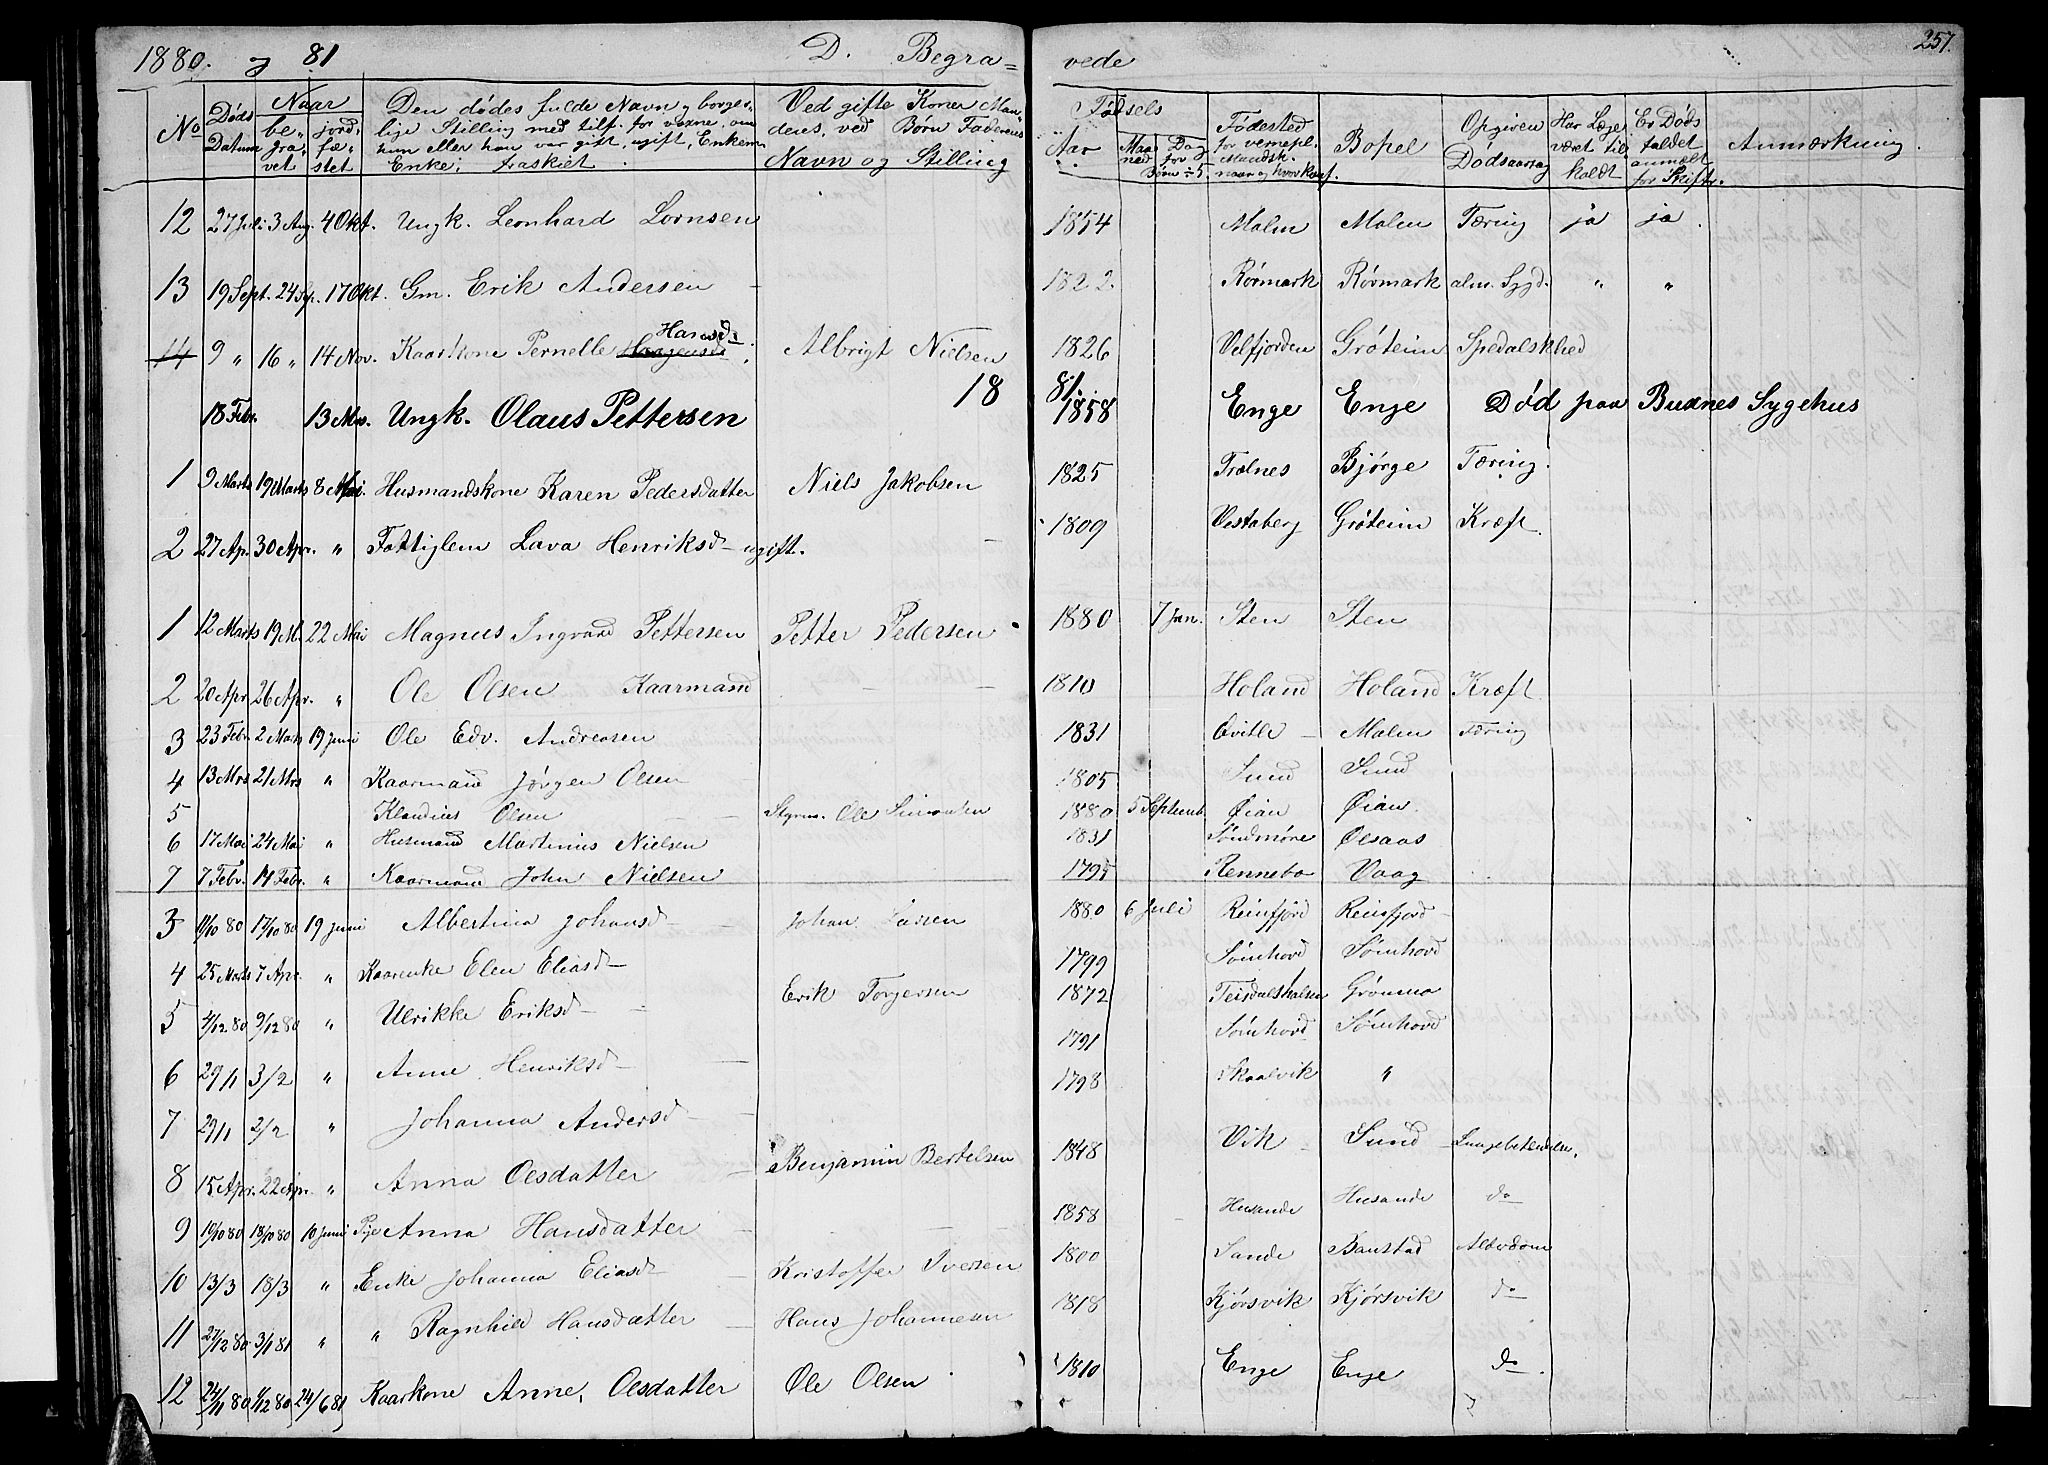 1880. og 81 D. Begra= vede 257.
No Døds Datum Naar be- gra- vet jord- fæ- stet Den dødes fulde Navn og borger- lige Stilling med tilf. for voxne, om hun eller han var gift, ugift, Enkem. Enke, fraskilt. Ved gifte Koner Man- dens, ved Børn Faderens Navn og Stilling Fødsels Aar Maa- ned Dag for Børn ÷ 5. Fødested for vernepl. Mandsk. naar og hvor konf. Bopel Opgiven Dødsaarsag Har Læge været til kaldt Er Døds faldet anmeldt for Skiftr. Anmærkning.
12 27 Juli 3 Aug. 4 Okt. Ungk. Leonhard Lornsen 1854 Malm Malm Tæring ja ja.
13 19 Sept. 24 Sp. 17 Okt. Gm. Erik Andersen - 1822. Rörmark Rörmark alm. Sygd. " "
14 9 " 16 " 14 Nov. Kaarkone Pernelle Hansd: Albrigt Nielsen 1826 Velfjorden Gróteim Spedalskhed
18 81.
18 Febr. 13 Mrs. Ungk. Olaus Pettersen 1858 Enge Enge Död paa Buxnes Sygehus
1 9 Marts 19 Marts 8 Mai Husmandskone Karen Pedersdatter Niels Jakobsen 1825 Trælnes Bjórge Tæring.
2 27 Ap. 30 Apr. " Fattiglem Lava Henriksd - ugift. - 1809 Vestaberg Gróteim Kræft
1 12 Marts 19 M. 22 Mai Magnus Ingvard Pettersen Petter Pedersen 1880 7 Jan. Sten Sten
2 20 Apr 26 Apr. " Ole Olsen Kaarmand - - 1810 Holand Holand Kræft
3 23 Febr. 2 Marts 19 Juni Ole Edv. Andreasen 1831 Qvitle - Malm Tæring
4 13 Mrs 21 Mrs " Kaarmand Jörgen Olsen 1805 Sund Sund
5 Klaudius Olsen - - Styrm. Ole Simonsen 1880 5 Septemb. Øian Øian.
6 17 Mai 24 Mai " Husmand Martinus Nielsen 1831 Söndmöre Ølsaas
7 7 Febr. 14 Febr. " Kaarmand John Nielsen 1795 Rennebo Vaag
3 11/10 80 17/10 80 19 Juni Albertina Johansd - - Johan Larsen 1880 6 Juli Reinfjörd Reinsfjord -
4 25 Marts 7 Apr. " Kaarenke Elen Eliasd - 1799 Sómhovd Sómhovd
5 4/12 80 9/12 80 " Ulrikke Eriksd - - Erik Torgersen 1872 Teisdalshalsen Grónmo
6 29/1 3/2 " Anne Henriksd - - 1791 Sómhovd Sómhovd
7 29/1 2/2 " Johanna Andersd - - 1798 Skaalvik "
8 15 Apr. 22 Apr. " Anna Olesdatter - Benjamin Bertelsen 1848 Vik - Sund - Lungebetændelse.
9 10/10 80 18/10 80 10 Juni Pige Anna Hansdatter - - 1858 - Husande Husande do
10 13/3 18/3 " Enke Johanna Eliasd - Kristoffer Iversen 1800 Sande Banstad Alderdom
11 27/12 80 3/1 81 " " Ragnhild Hansdatter - Hans Johannesen 1818 Kjórsvik Kjórsvik do
12 24/11 80 1/12 80 24/6 81 Kaarkone Anne, Olesdatter Ole Olsen 1810 Enge Enge do